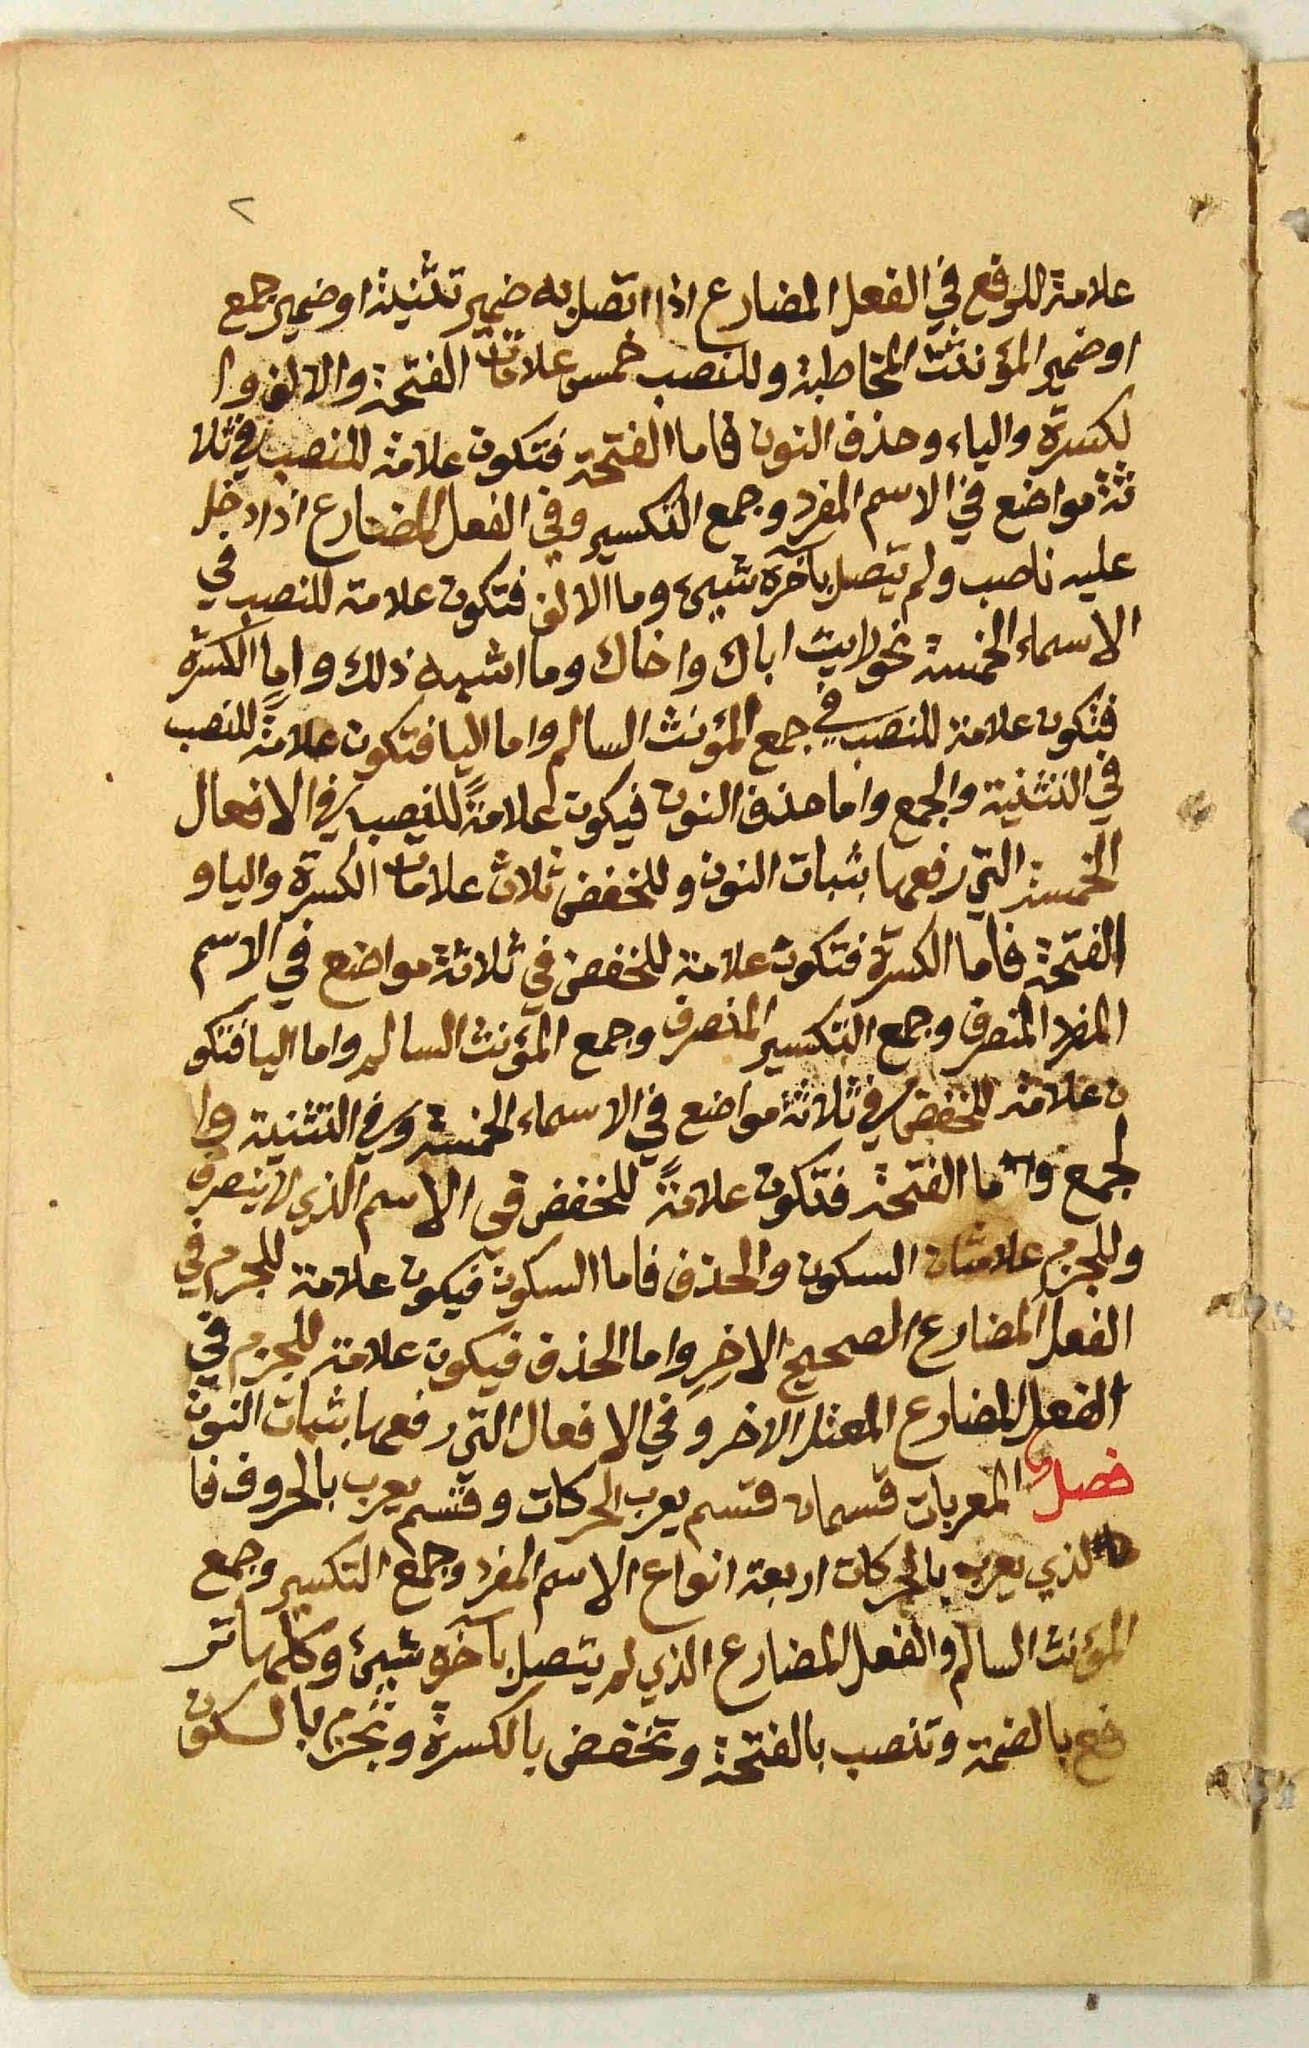 ٢
علامة للرفع في الفعل المضارع اذا اتصل به ضمير تثنية او ضمير جمع
او ضمير المؤنثت المخاطبة وللنصب خمس علامات الفتحة والالف وا
لكسرة والياء وحذف النون فاما الفتحة فتكون علامة للنصب في ثلا
ثة مواضع في الاسم المفرد وجمع التكسير وفي الفعل المضارع اذا دخل
عليه ناصب ولم يتصل بآخره شيئ وما الالف فتكون علامة للنصب في
الاسماء الخمسة نحو رايت اباك واخاك وما اشبه ذلك واما الكسرة
فتكون علامة للنصب في جمع المؤنث السالم واما اليا فتكون علامةً للنصب
في التثنية والجمع واما حذف النون فيكون علامةً للنصب في الافعال
الخمسة التي رفعها بثبات النون وللخفض ثلاث علامات الكسرة واليا و
الفتحة فاما الكسرة فتكون علامة للخفض في ثلاثة مواضع في الاسم
المفرد المنصرف وجمع التكسير المنصرف وجمع المؤنث السالم واما اليا فتكو
ن علامة للخفض في ثلاثة مواضع في الاسماء الخمسة وفي التثنية وا
لجمع واما الفتحة فتكون علامةً للخفض في الاسم الذي لا ينصرف
وللجزم علامتان السكون والحذف فاما السكون فيكون علامة للجزم في
الفعل المضارع الصحيح الاخِرِ واما الحذف فيكون علامة للجزم في
الفعل المضارع المعتل الاخر وفي الافعال التي رفعها بثبات النون
فصل المعربات قسمان قسم يعرب الحركات وقسم يعرب بالحروف فا
لذي يعرب بالحركات اربعة انواع الاسم المفرد وجمع التكسير وجمع
المؤنث السالم والفعل المضارع الذي لم يتصل بآخره شيئ وكلها تر
فع بالضمة وتنصب بالفتحة وتخفض بالكسرة وتجزم بالسكون